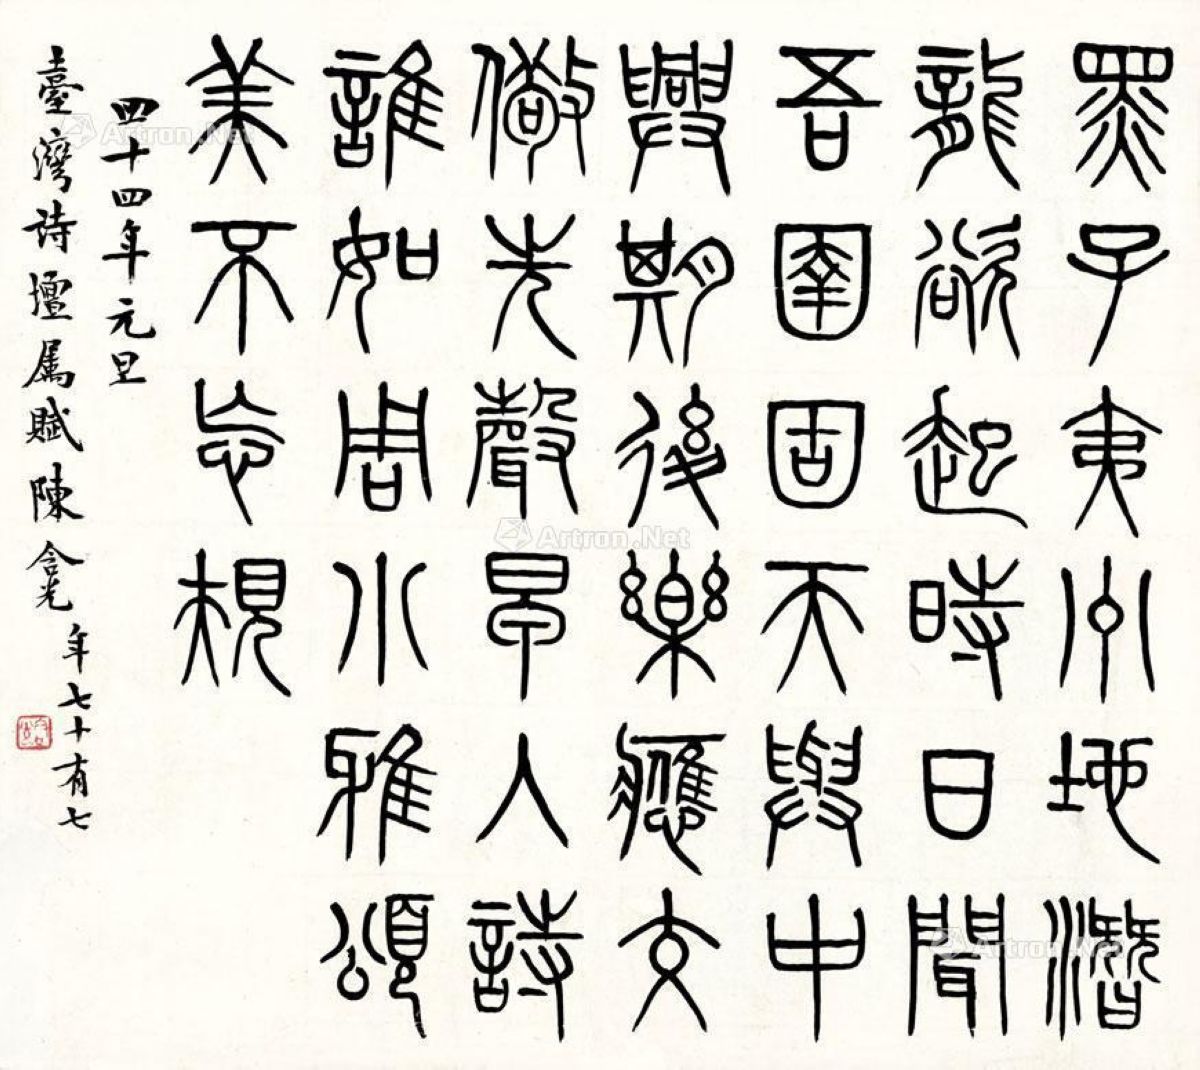 黑子夷州地潛
龍欲起時日聞
吾圉固天與中
興期後樂應交
儆先聲早入詩
誰如周小雅頌
美不忘規
四十四年元旦
臺灣詩壇屬賦陳含光年七十有七
Artron.Net
Artron.Net
Artron.Net